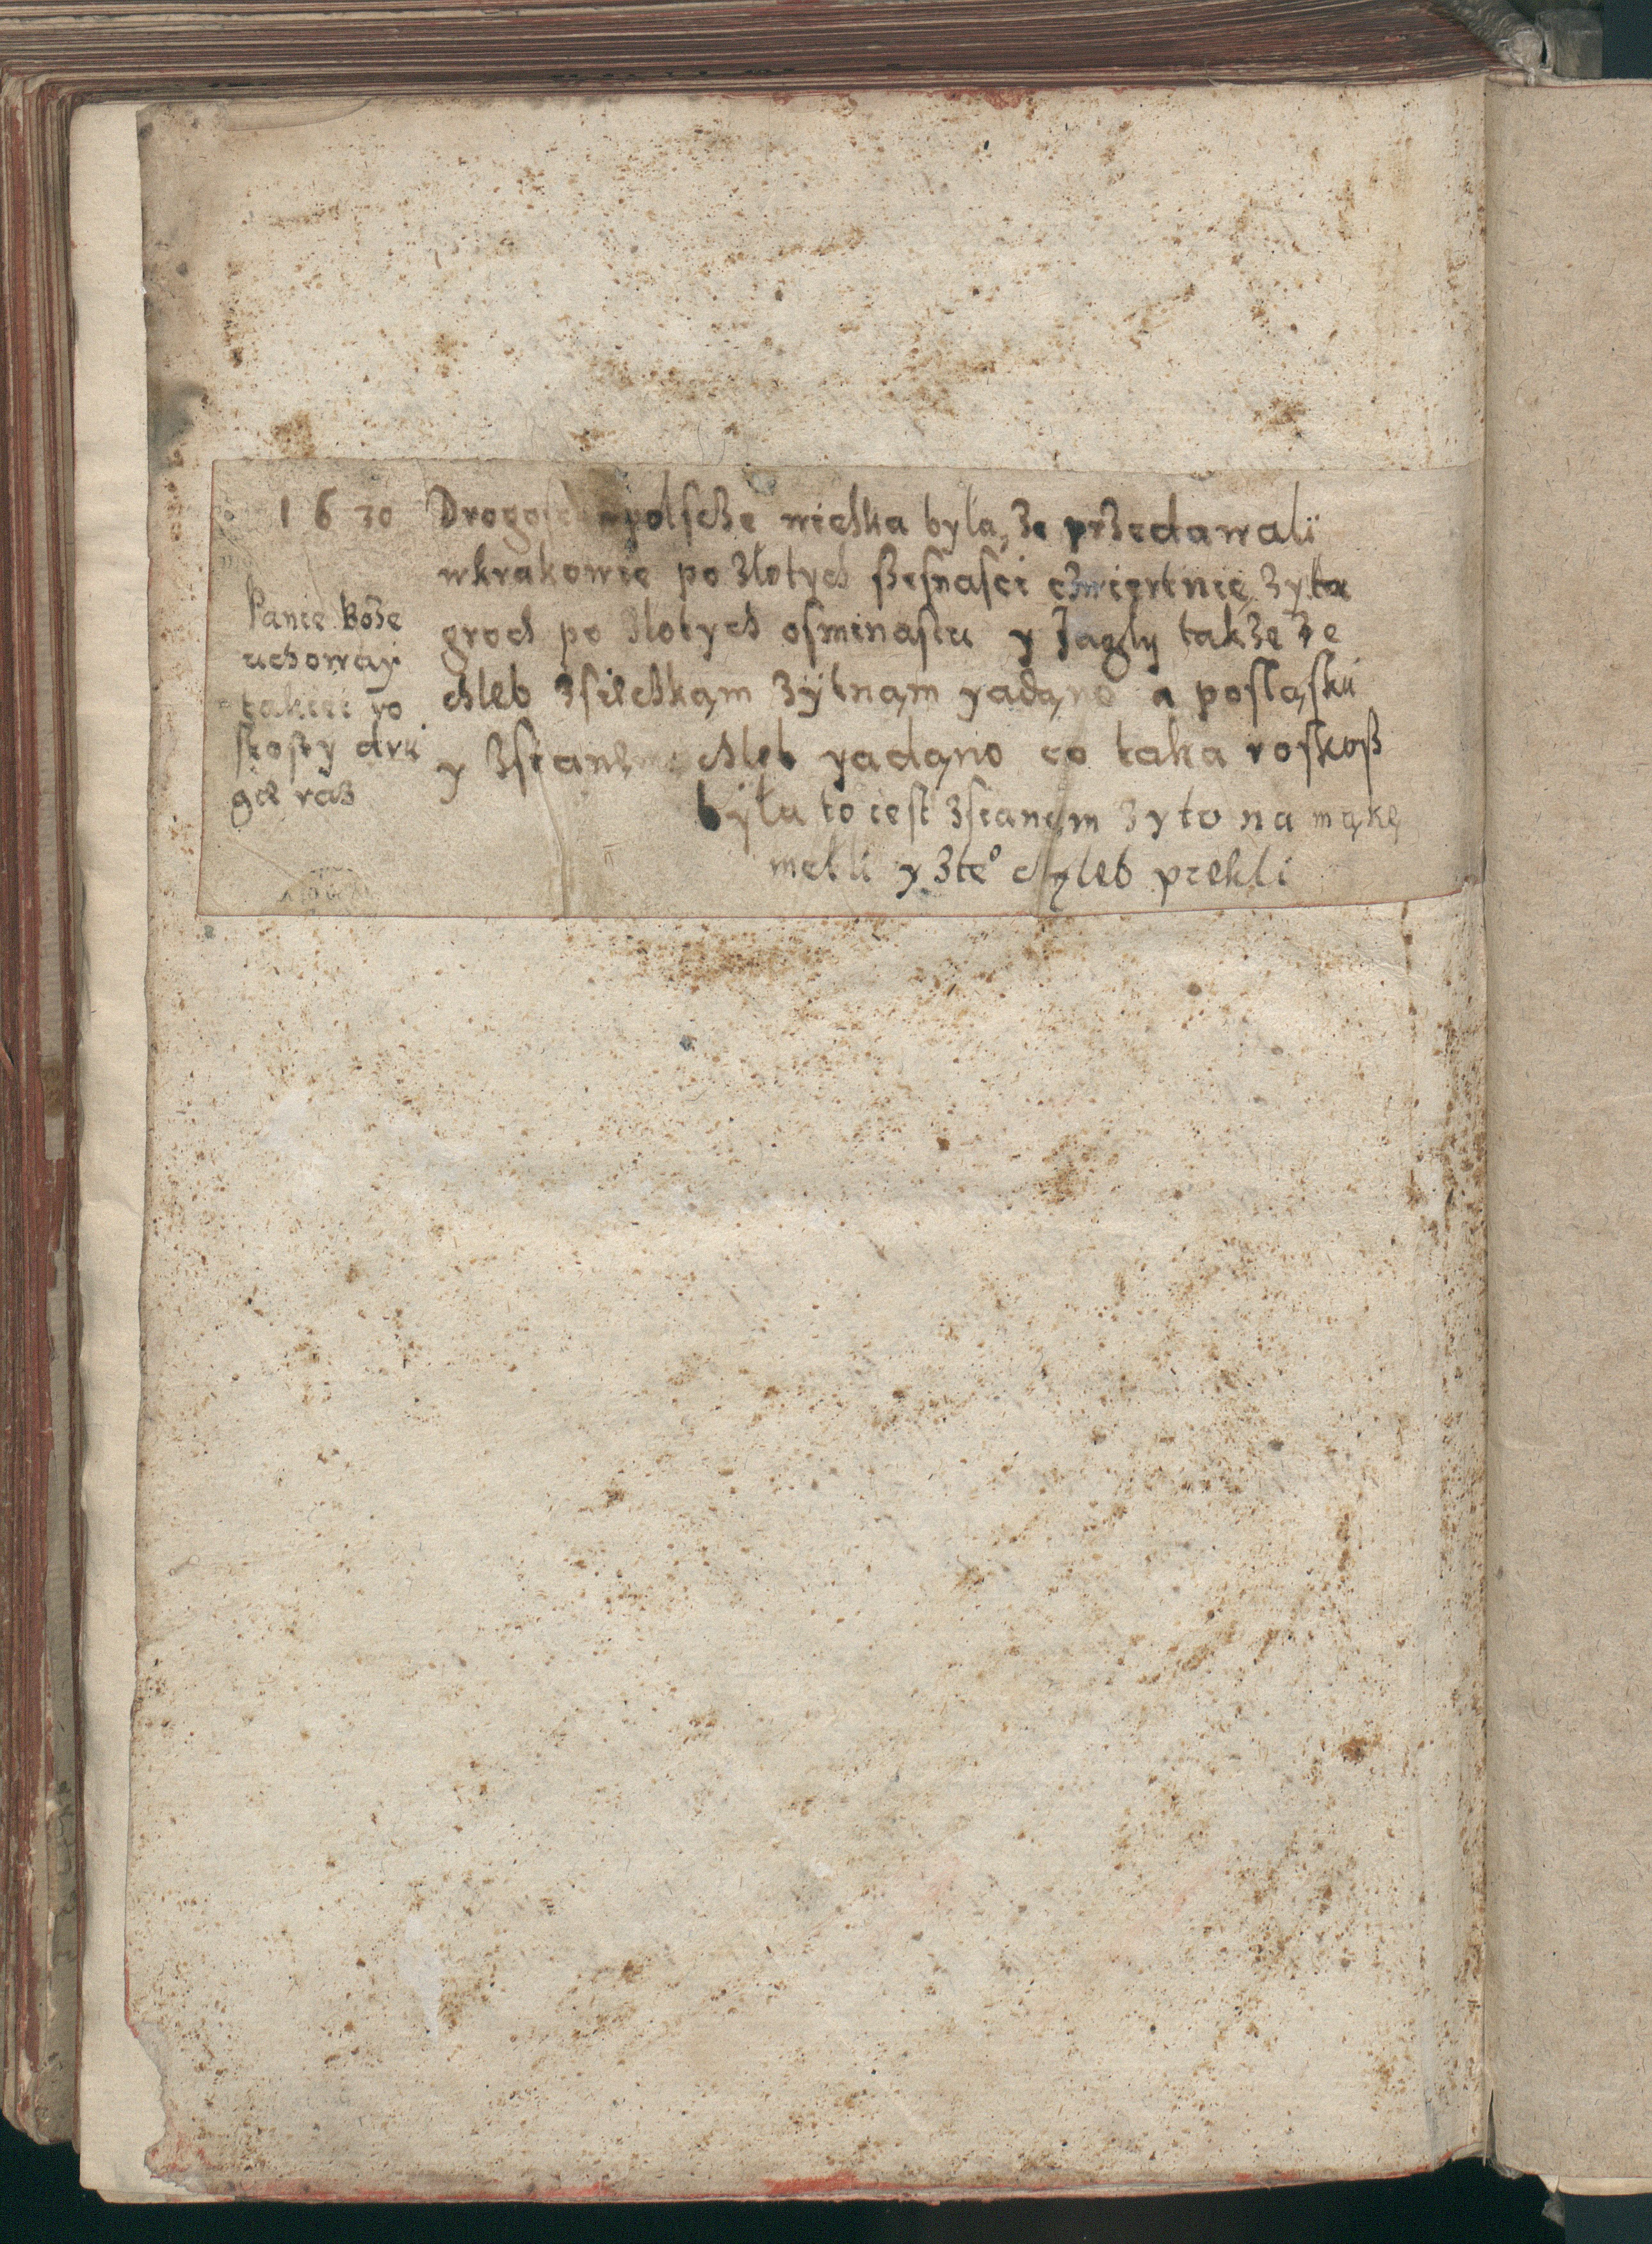 1630 Drogosc wpolscze wielka byla, ze przedawali
wkrakowie po zlotych szesnasci czwiertnie zyta
groch po zlotych osminastu y Jagly takze ze
chleb zsieczką,m zÿtną,m yadą,no a poslą,sku
y zsianem chleb yadą,no co taka roskosz
byla to iest zsianem zyto na mąkę
metli y zte⁰ chleb piekli
Panie Boze
uchoway
takiei ro
skoszy dru
gié raz